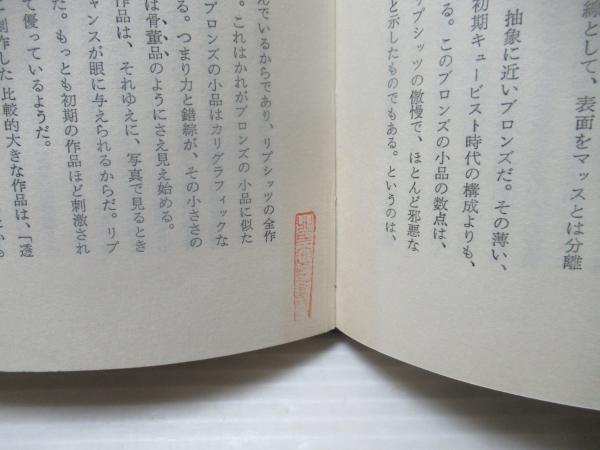 線として、表面をマッスとは分離
抽象に近いブロンズだ。その薄い、
初期キュービスト時代の構成よりも、
る。このブロンズの小品の数点は、
リプシッツの傲慢で、ほとんど邪悪な
と示したものでもある。というのは、
んでいるからであり、リプシッツの全作
。これはかれがブロンズの小品に似た
ブロンズの小品はカリグラフィックな
る。つまり力と錯綜が、その小ささの
は骨董品のようにさえ見え始める。
作品は、それゆえに、写真で見るとき
ャンスが眼に与えられるからだ。リプ
だ。もっとも初期の作品ほど刺激され
て優っているようだ。
制作した比較的大きな作品は、「透